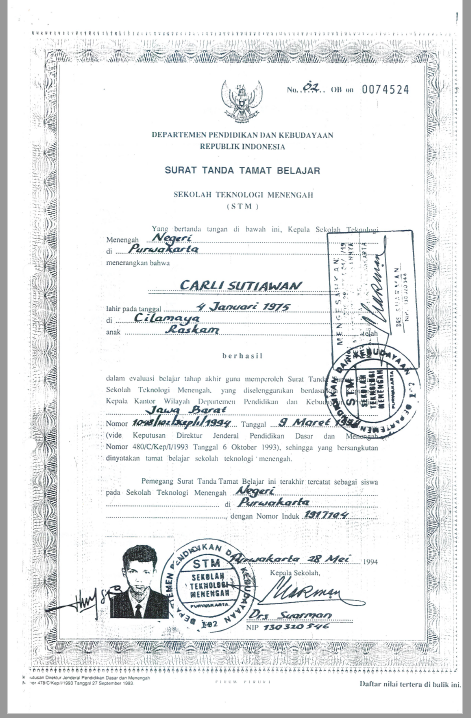 No. 02 OB on 0074524
DEPARTEMEN PENDIDIKAN DAN KEBUDAYAAN
REPUBLIK INDONESIA
SURAT TANDA TAMAT BELAJAR
SEKOLAH TEKNOLOGI MENENGAH
( STM )
Yang bertanda tangan di bawah ini, Kepala Sekolah Teknologi
Menengah Negeri
di Purwakarta
menerangkan bahwa
CARLI SUTIAWAN
lahir pada tanggal 4 Januari 1975
di Cilamaya
anak Raskam
berhasil
dalam evaluasi belajar tahap akhir guna memperoleh Surat Tanda
Sekolah Teknologi Menengah, yang diselenggarakan
Kepala Kantor Wilayah Departemen Pendidikan dan
Jawa Barat
Nomor Tanggal 9 Maret
(vide Keputusan Direktur Jenderal Pendidikan Dasar dan Menengah
Nomor 480/C/Kep/I/1993 Tanggal 6 Oktober 1993), sehingga yang bersangkutan
dinyatakan tamat belajar sekolah teknologi menengah.
Pemegang Surat Tanda Tamat Belajar ini terakhir tercatat sebagai siswa
pada Sekolah Teknologi Menengah Negeri
di Purwakarta
, dengan Nomor Induk
MENGESAHKAN
DEPARTEMEN PENDIDIKAN DAN KEBUDAYAAN
STM
SEKOLAH
TEKNOLOGI
MENENGAH
PURWAKARTA
Purwakarta 28 Mei 1994
Kepala Sekolah,
Drs. Suarman
NIP 130320546
DEPARTEMEN PENDIDIKAN DAN KEBUDAYAAN
STM
SEKOLAH
TEKNOLOGI
MENENGAH
PURWAKARTA
utusan Direktur Jenderal Pendidikan Dasar dan Menengah
478/C/Kep/I/1993 Tanggal 27 September 1993
Daftar nilai tertera di balik ini.